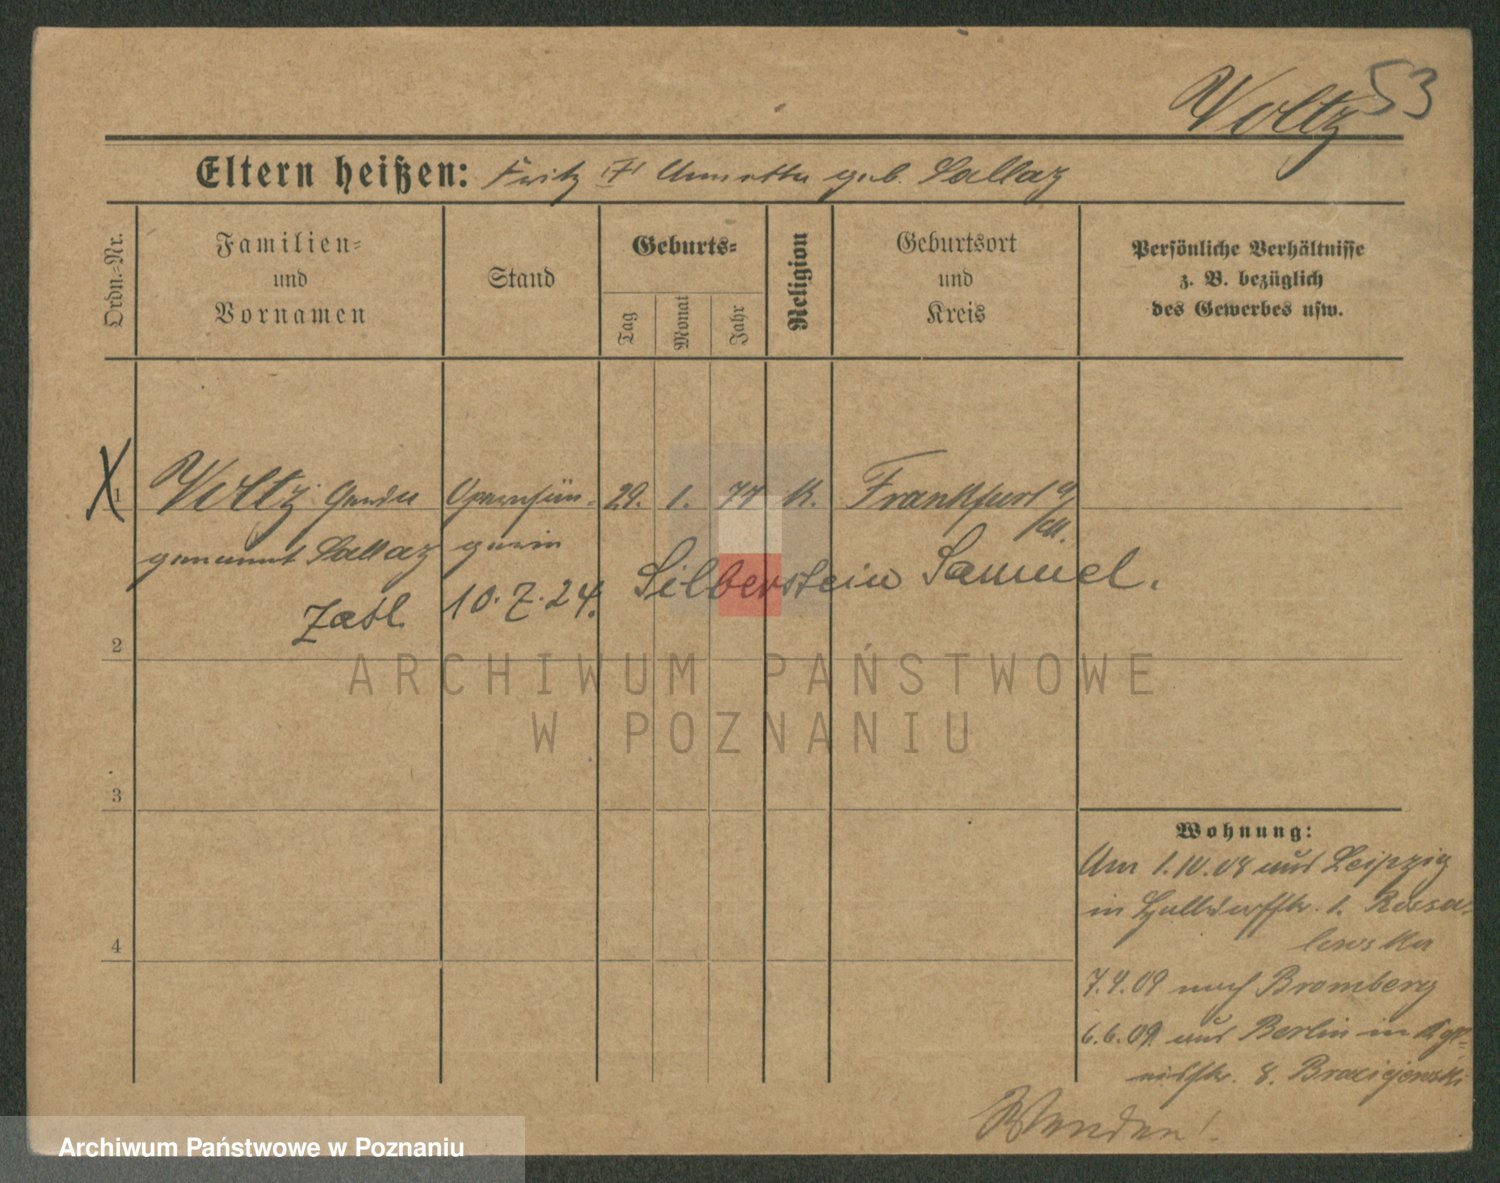 Voltz 53
Eltern heißen: Fritz Annetta geb. Sallaz
Ordn.-Nr.
Familien-
und
Vornamen
Stand
Geburts-
Tag
Monat
Jahr
Religion
Geburtsort
und
Kreis
Persönliche Verhältnisse
z. B. bezüglich
des Gewerbes usw.
X 1 Voltz Opernsän- 29. 1. 77 K. Frankfurt a/
genannt Sallaz gerin M.
Zasl. 10.7.24. Silberstein Samuel.
2
3
4
ARCHIWUM PAŃSTWOWE
W POZNANIU
Wohnung:
Am 1.10.08 aus Leipzig
in 1.
7.4.09 nach Bromberg
6.6.09 aus Berlin in
8.
Wenden!
Archiwum Państwowe w Poznaniu